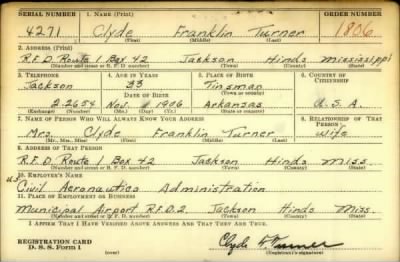 SERIAL NUMBER 1. NAME (Print) ORDER NUMBER
4271 Clyde Franklin Turner 1806
(First) (Middle) (Last)
2. ADDRESS (Print)
R.F.D. Route 1 Box 42 Jackson Hinds Mississippi
(Number and street or R. F. D. number) (Town) (County) (State)
3. TELEPHONE 4. AGE IN YEARS 5. PLACE OF BIRTH 6. COUNTRY OF CITIZENSHIP
Jackson 33 Tinsman
DATE OF BIRTH (Town or county)
2-2654 Nov. 1906 Arkansas U.S.A.
(Exchange) (Number) (Mo.) (Day) (Yr.) (State or country)
7. NAME OF PERSON WHO WILL ALWAYS KNOW YOUR ADDRESS 8. RELATIONSHIP OF THAT PERSON
Mrs. Clyde Franklin Turner Wife
(Mr., Mrs., Miss) (First) (Middle) (Last)
9. ADDRESS OF THAT PERSON
R.F.D. Route 1 Box 42 Jackson Hinds Miss.
(Number and street or R. F. D. number) (Town) (County) (State)
10. EMPLOYER'S NAME
U.S. Civil Aeronautics Administration
11. PLACE OF EMPLOYMENT OR BUSINESS
Municipal Airport R.F.D.2. Jackson Hinds Miss.
(Number and street or R. F. D. number) (Town) (County) (State)
I AFFIRM THAT I HAVE VERIFIED ABOVE ANSWERS AND THAT THEY ARE TRUE.
REGISTRATION CARD
D. S. S. Form 1 (over) Clyde F Turner
(Registrant's signature)